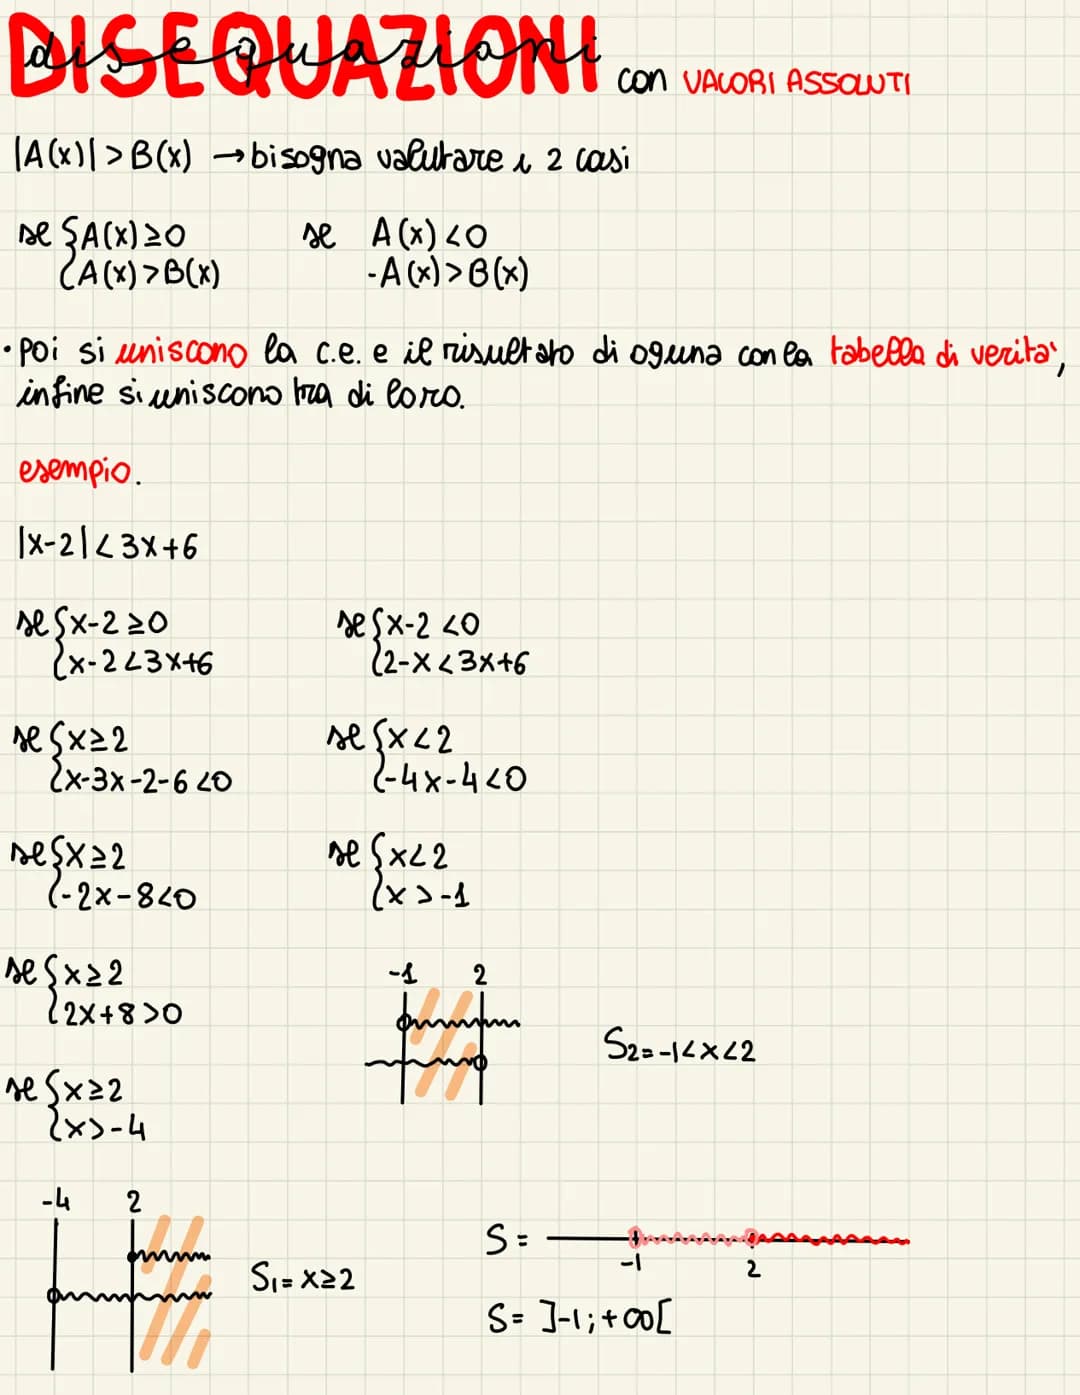 DISEQUAZIONI
disequazioni con VALORI ASSOLUTI
|A(x)| > B(x) → bisogna valutare i 2 casi
se { A(x) ≥ 0    se A(x) < 0
{ A(x) > B(x)    -A(x) > B(x)
• poi si uniscono la c.e. e il risultato di oguna con la tabella di verita',
infine si uniscono tra di loro.
esempio.
|x-2| < 3x+6
se { x-2 ≥ 0    se { x-2 < 0
{ x-2 < 3x+6    { 2-x < 3x+6
se { x ≥ 2    se { x < 2
{ x-3x-2-6 < 0    { -4x-4 < 0
se { x ≥ 2    se { x < 2
{ -2x-8 < 0    { x > -1
se { x ≥ 2    -1 2
{ 2x+8 > 0
S2 = -1 < x < 2
se { x ≥ 2
{ x > -4
-4 2
S =
-1 2
S1 = x ≥ 2
S = ]-1; +∞[